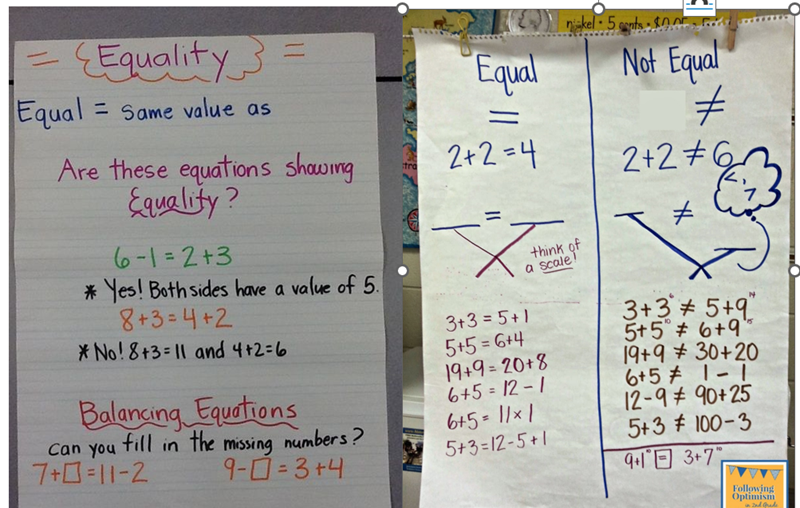 = Equality =
Equal = same value as
Are these equations showing
Equality?
6-1=2+3
* Yes! Both sides have a value of 5.
8+3=4+2
* No! 8+3=11 and 4+2=6
Balancing Equations
can you fill in the missing numbers?
7+□=11-2 9-□=3+4
nickel • 5 cents • $0.05
Equal
=
2+2=4
=
think of
a scale!
3+3=5+1
5+5=6+4
19+9=20+8
6+5=12-1
6+5=11x1
5+3=12-5+1
Not Equal
≠
2+2≠6
<, >
≠
3+3⁶ ≠ 5+9¹⁴
5+5¹⁰ ≠ 6+9¹⁵
19+9 ≠ 30+20
6+5 ≠ 1-1
12-9 ≠ 90+25
5+3 ≠ 100-3
9+1¹⁰ = 3+7¹⁰
Following
Optimism
in 2nd Grade